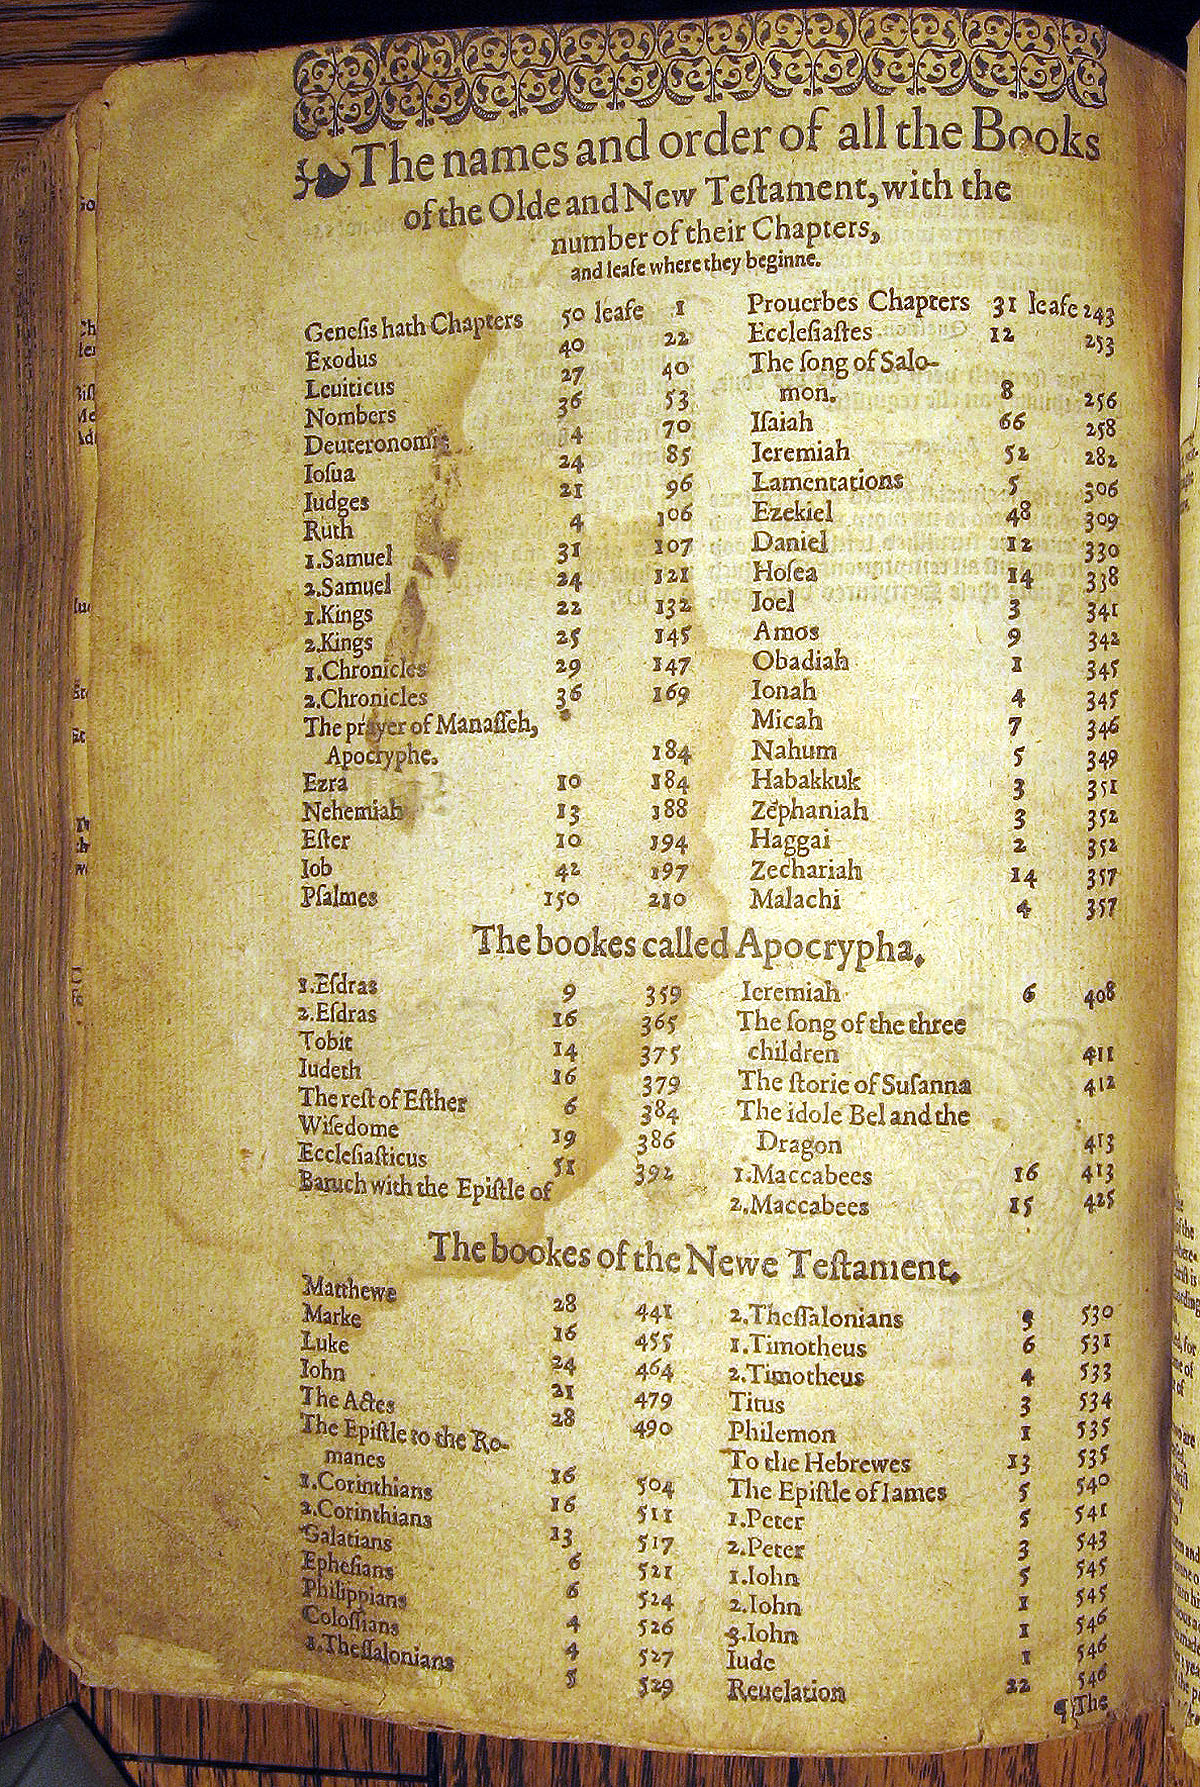 The names and order of all the Books
of the Olde and New Teſtament, with the
number of their Chapters,
and leafe where they beginne.
Geneſis hath Chapters 50 leafe 1
Exodus 40 22
Leuiticus 27 40
Nombers 36 53
Deuteronomie 4 70
Ioſua 24 85
Iudges 21 96
Ruth 4 106
1.Samuel 31 107
2.Samuel 24 121
1.Kings 22 132
2.Kings 25 145
1.Chronicles 29 147
2.Chronicles 36 169
The prayer of Manaſſeh,
Apocryphe. 184
Ezra 10 184
Nehemiah 13 188
Eſter 10 194
Iob 42 197
Pſalmes 150 210
Prouerbes Chapters 31 leafe 243
Eccleſiaſtes 12 253
The ſong of Salo-
mon. 8 256
Iſaiah 66 258
Ieremiah 52 282
Lamentations 5 306
Ezekiel 48 309
Daniel 12 330
Hoſea 14 338
Ioel 3 341
Amos 9 342
Obadiah 1 345
Ionah 4 345
Micah 7 346
Nahum 5 349
Habakkuk 3 351
Zephaniah 3 352
Haggai 2 352
Zechariah 14 357
Malachi 4 357
The bookes called Apocrypha.
1.Eſdras 9 359
2.Eſdras 16 365
Tobit 14 375
Iudeth 16 379
The reſt of Eſther 6 384
Wiſedome 19 386
Eccleſiaſticus 51 392
Baruch with the Epiſtle of
Ieremiah 6 408
The ſong of the three
children 411
The ſtorie of Suſanna 412
The idole Bel and the
Dragon 413
1.Maccabees 16 413
2.Maccabees 15 425
The bookes of the Newe Teſtament.
Matthewe 28 441
Marke 16 455
Luke 24 464
Iohn 21 479
The Actes 28 490
The Epiſtle to the Ro-
manes 16 504
1.Corinthians 16 511
2.Corinthians 13 517
Galatians 6 521
Epheſians 6 524
Philippians 4 526
Coloſſians 4 527
1.Theſſalonians 5 529
2.Theſſalonians 3 530
1.Timotheus 6 531
2.Timotheus 4 533
Titus 3 534
Philemon 1 535
To the Hebrewes 13 535
The Epiſtle of Iames 5 540
1.Peter 5 541
2.Peter 3 543
1.Iohn 5 545
2.Iohn 1 545
3.Iohn 1 546
Iude 1 546
Reuelation 22 546
¶ The